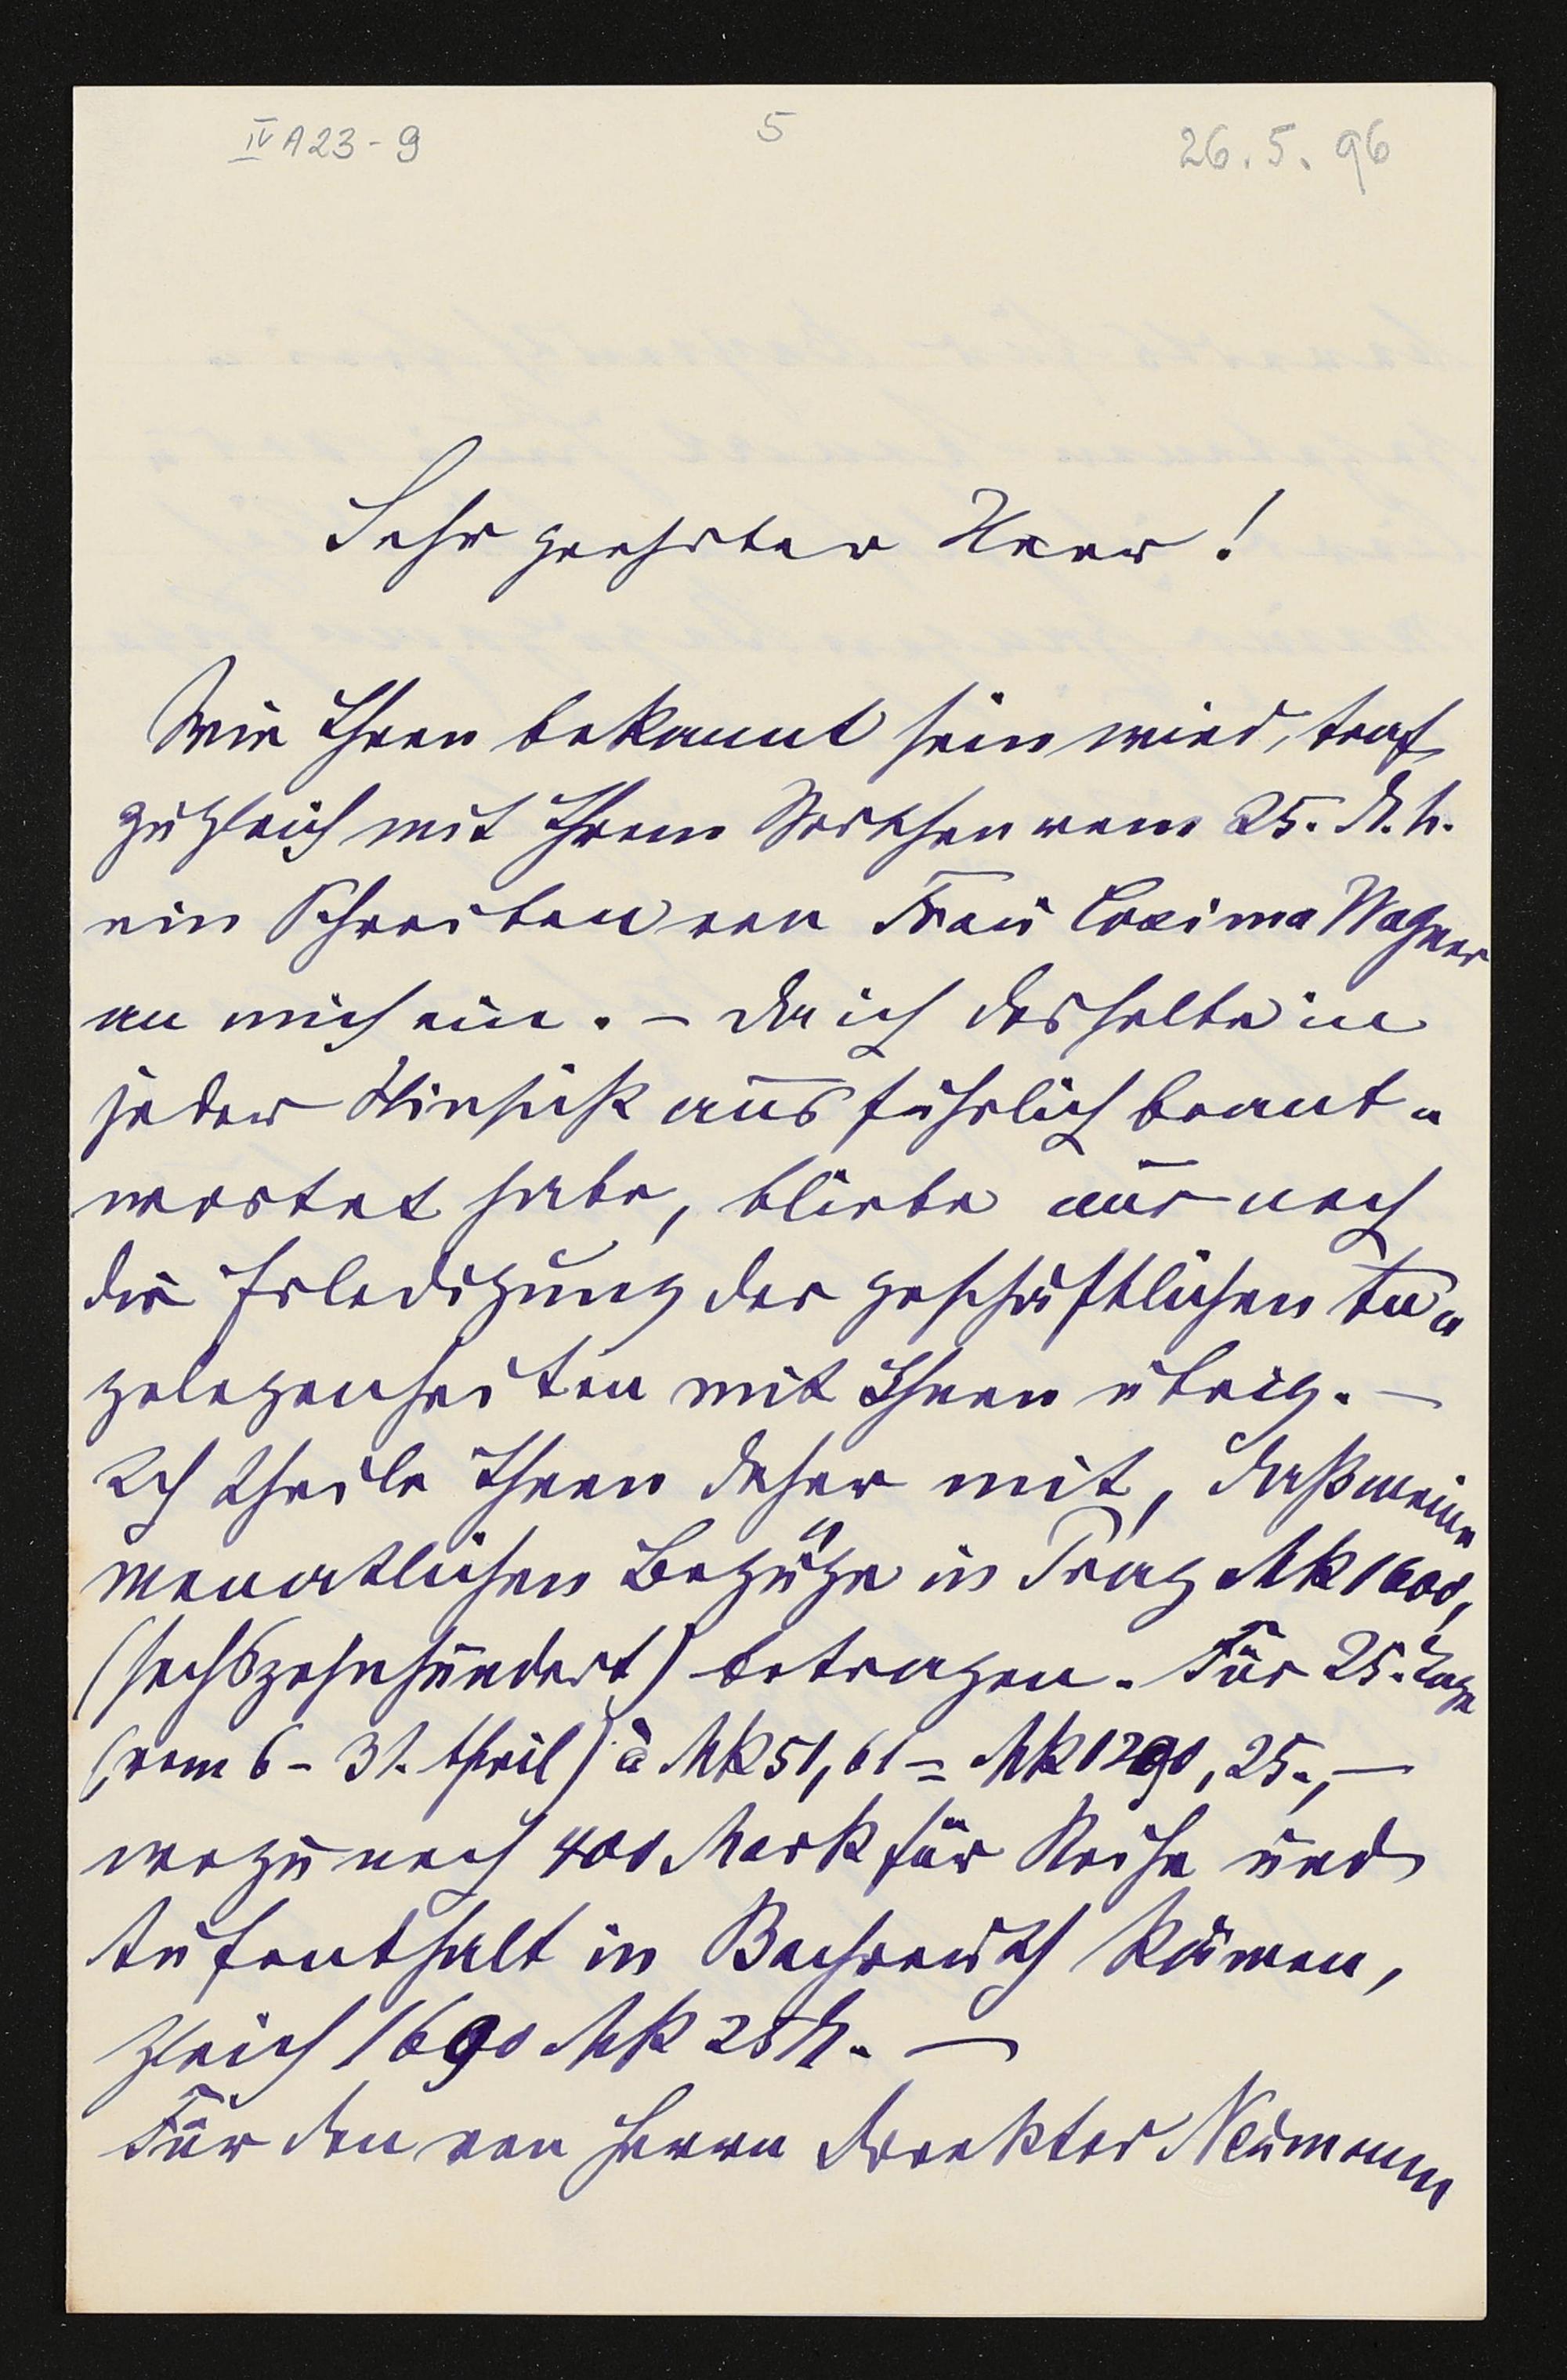 IV A 23-9
5
26.5.96
Sehr geehrter Herr!
Wie Ihnen bekannt sein wird, traf
zugleich mit Ihrem Werthen vom 25. d. M.
ein Schreiben von Frau Cosima Wagner
an mich ein. – Da ich dasselbe in
jeder Hinsicht ausführlich beant-
wortet habe, bliebe nur noch
die Erledigung der geschäftlichen An-
gelegenheiten mit Ihnen übrig. –
Ich theile Ihnen daher mit, daß meine
monatlichen Bezüge in Prag Mk 1600,
(sechszehnhundert) betragen. Für 25. Tage
(vom 6 – 31. April) à Mk 51,61 = Mk 1290,25., –
wozu noch 400 Mark für Reise und
Aufenthalt in Bayreuth kämen,
gleich 1690 Mk 25 –
Für den von Herrn Direktor Neumann